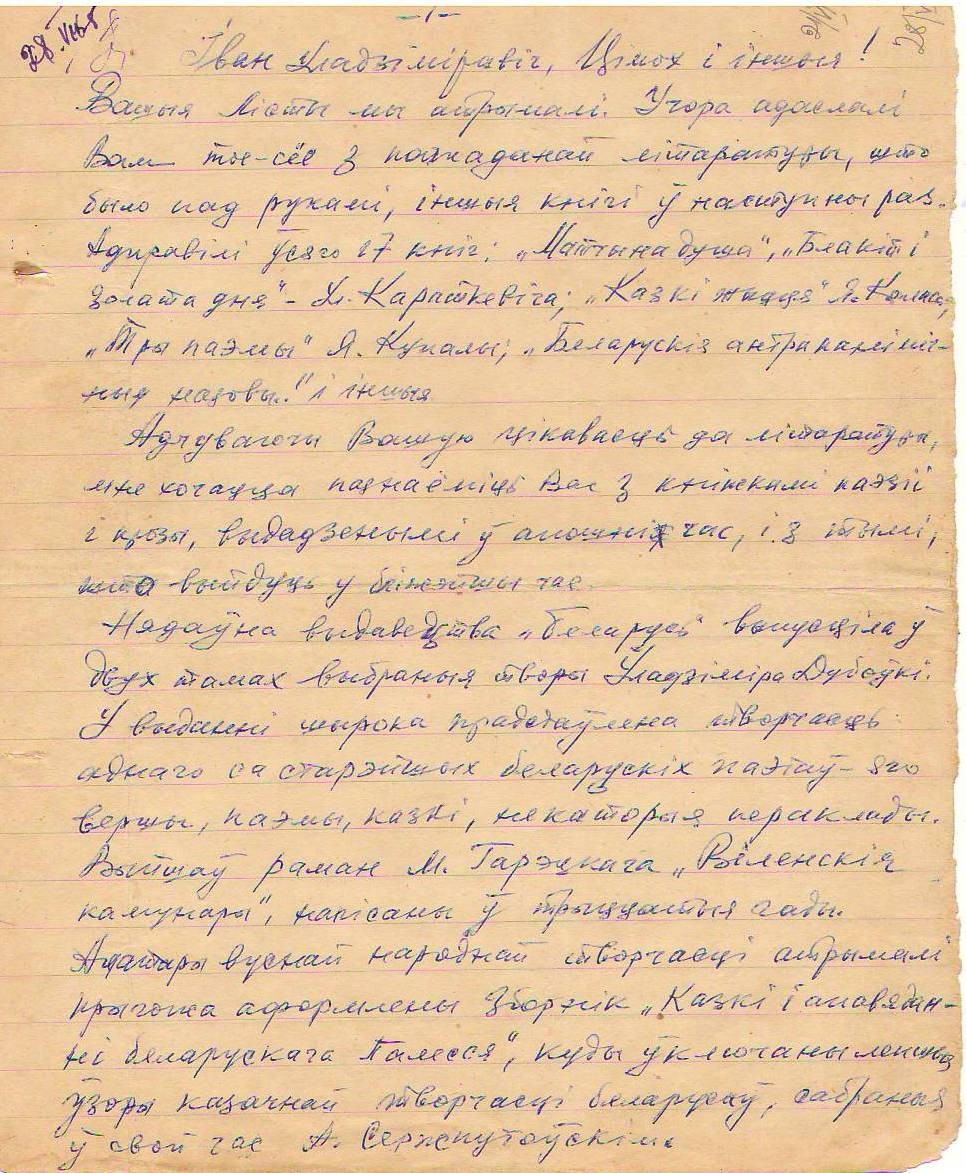 -1-
Іван Уладзіміравіч, Цімох і іншыя!
Вашыя лісты мы атрымалі. Учора адаслалі
Вам тое-сёе з пажаданай літаратуры, што
было пад рукамі, іншыя кнігі ў наступны раз.
Адправілі ўсяго 17 кніг: „Матчына душа“, „Блакіт і
золата дня“ - Ул. Караткевіча; „Казкі жыцця“ Я. Коласа;
„Тры паэмы“ Я. Купалы; „Беларускія антрапаніміч-
ныя назовы..“ і іншыя
Адчуваючы Вашую цікавасць да літаратуры,
мне хочацца пазнаёміць Вас з кніжкамі паэзіі
і прозы, выдадзенымі ў апошні час, і з тымі,
што выйдуць у бліжэйшы час.
Нядаўна выдавецтва „Беларусь“ выпусціла ў
двух тамах выбраныя творы Уладзіміра Дубоўкі.
У выданні шырока прадстаўлена творчасць
аднаго са старэйшых беларускіх паэтаў - яго
вершы, паэмы, казкі, некаторыя пераклады.
Выйшаў раман М. Гарэцкага „Віленскія
камунары“, напісаны ў трыццатыя гады.
Аматары вуснай народнай творчасці атрымалі
прыгожа аформлены зборнік „Казкі і апавядан-
ні беларускага Палесся“, куды ўключаны лепшыя
ўзоры казачнай творчасці беларусаў, сабраныя
ў свой час А. Сержпутоўскім.